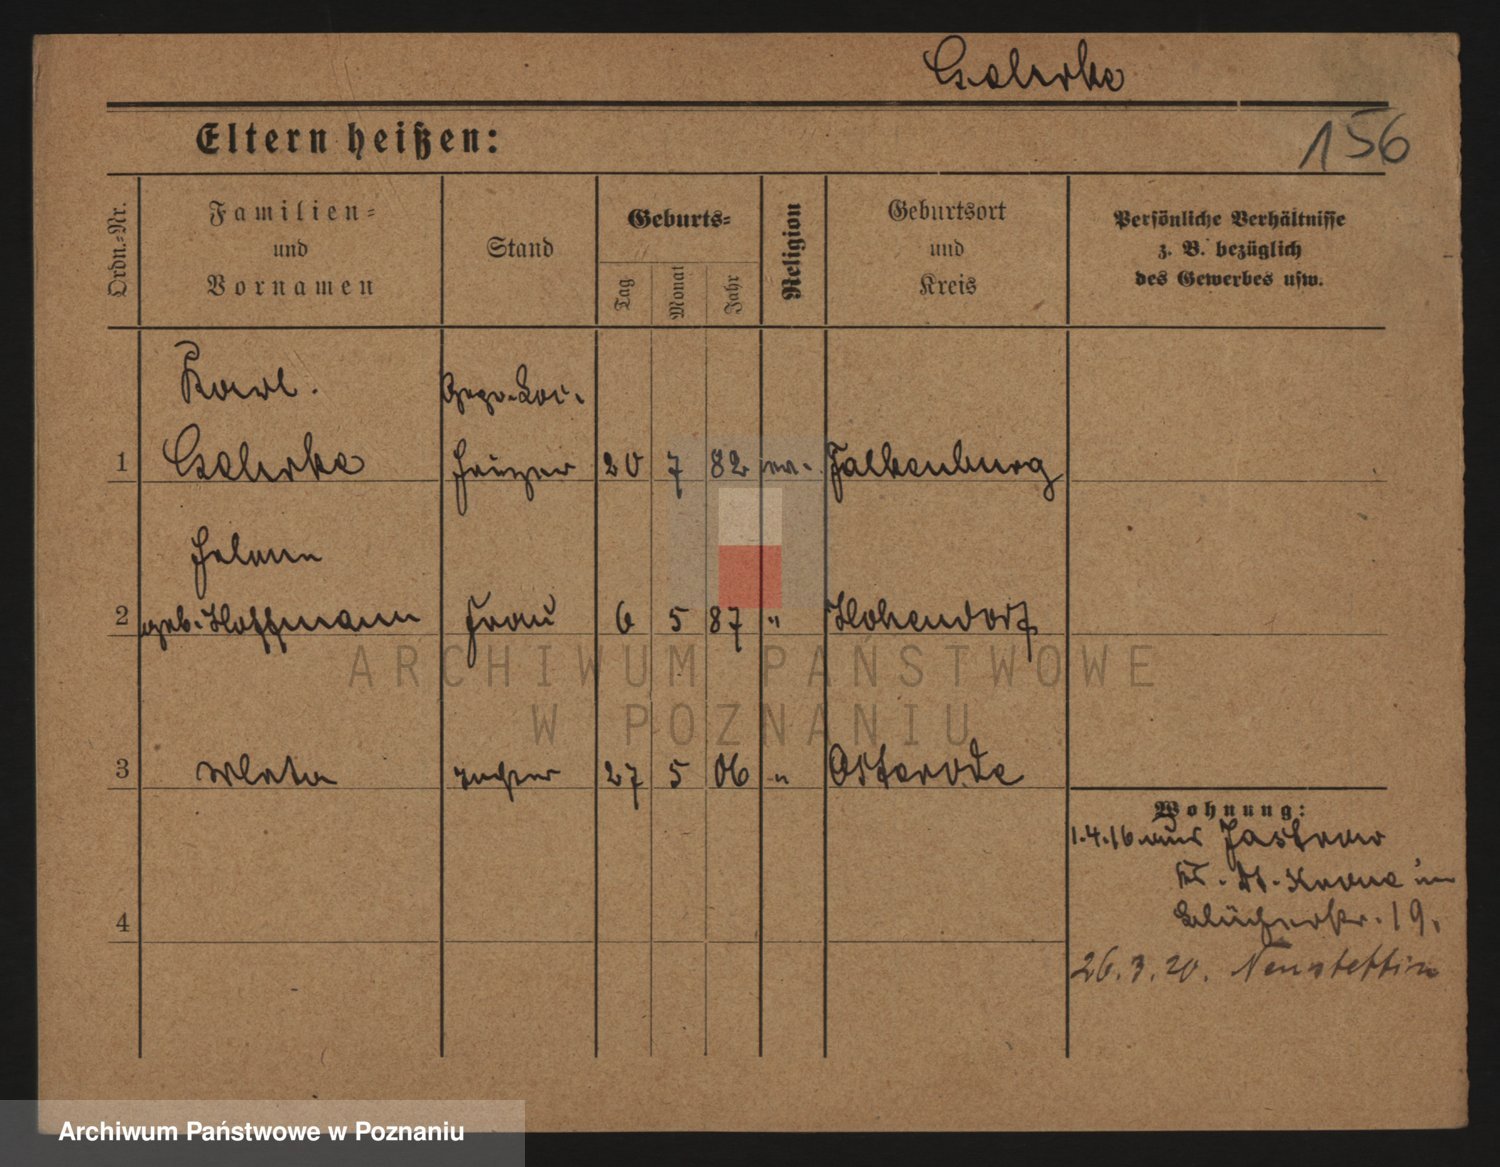 156
Eltern heißen:
Ordn.-Nr.
Familien-
und
Vornamen
Stand
Geburts-
Tag
Monat
Jahr
Religion
Geburtsort
und
Kreis
Persönliche Verhältnisse
z. B. bezüglich
des Gewerbes usw.
Karl.
1 20 7 82 ev. Falkenburg
Helene
2 geb. Hoffmann Frau 6 5 87 " Hohendorf
3 Tochter 27 5 06 " Osterode
4
Wohnung:
1.4.16 aus Jastrow
Kr. Dt. Krone in
Blücherstr. 19.
26.3.20. Neustettin
ARCHIWUM PAŃSTWOWE
W POZNANIU
Archiwum Państwowe w Poznaniu